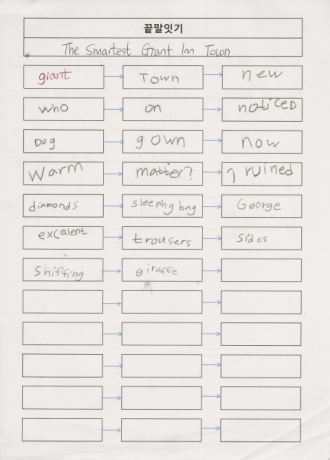 끝말잇기
The Smartest Giant Im Town
giant Town new
who on noticed
Dog gown now
Warm matter? ruined
diamonds sleeping bag George
excalent trousers Sides
Shifting giraffe